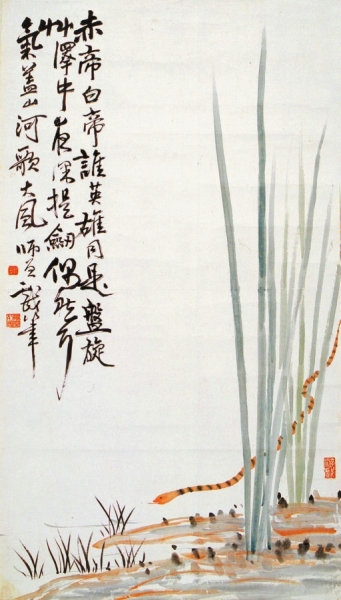 赤帝白帝誰英雄同是盤旋
艸澤中夜深提劍偶然行
氣蓋山河歌大風 師曾戲筆